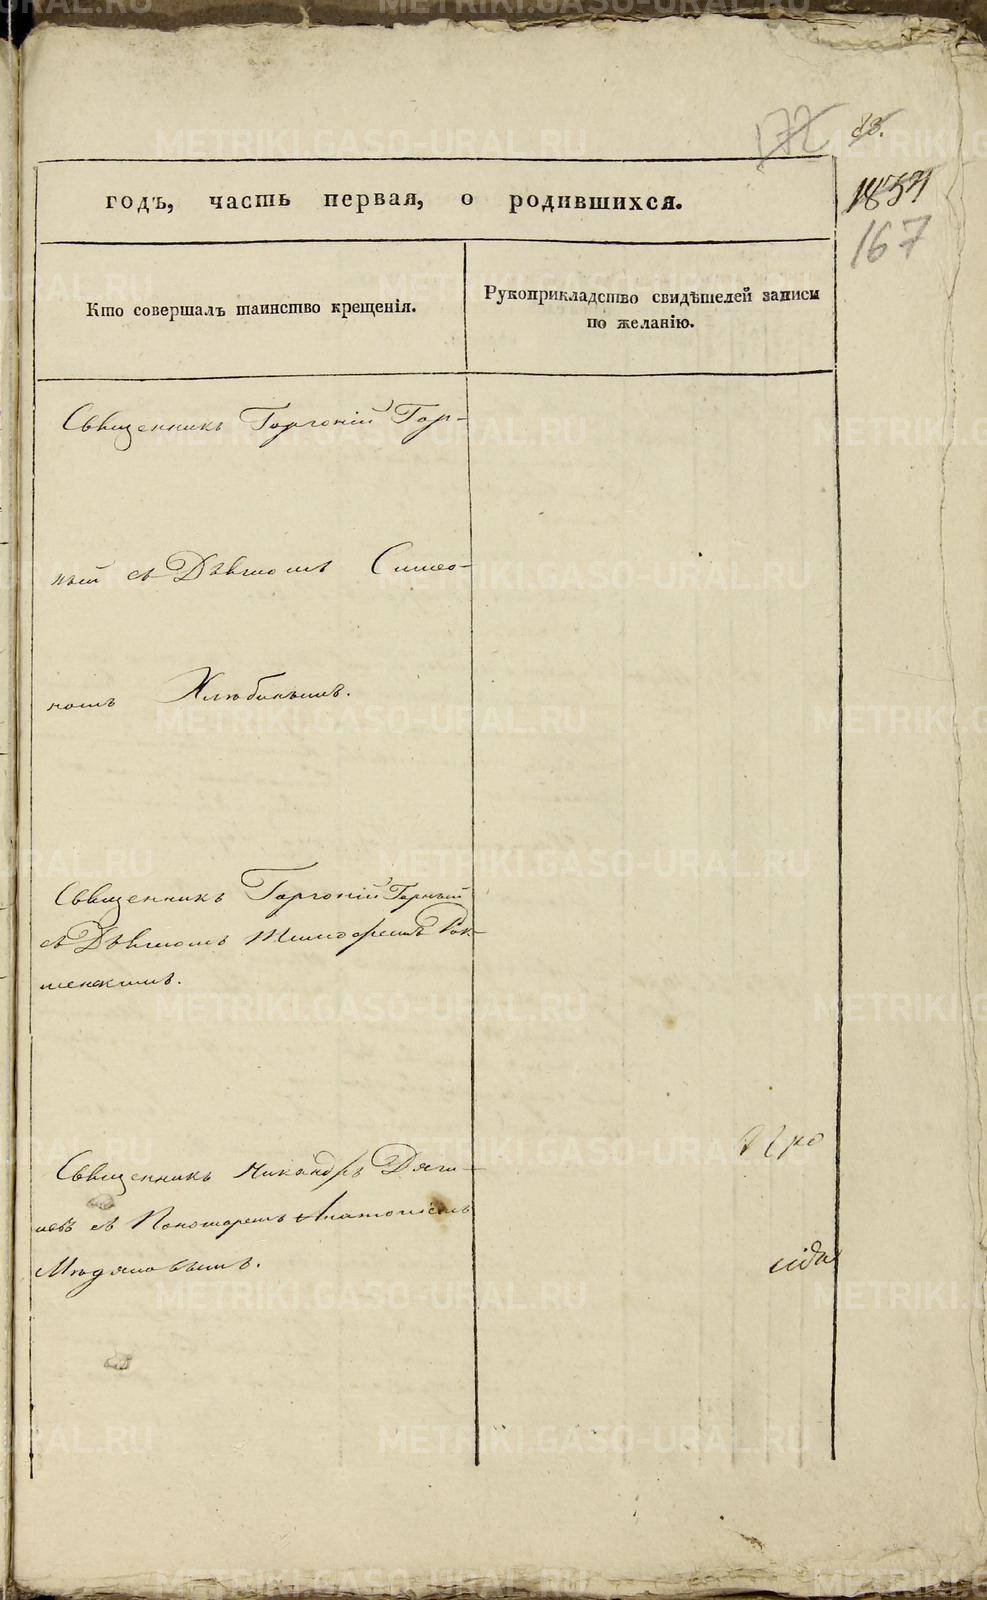 METRIKI.GASO-URAL.RU
172 83.
167
годъ, часть первая, о родившихся.
Кто совершалъ таинство крещенія.
Рукоприкладство свидѣтелей записи
по желанію.
Священникъ Горгоній Гор-
ный съ Дьячкомъ Симео-
номъ Хлюбинымъ.
Священникъ Горгоній Горный
съ Дьячкомъ Тимофеемъ
Священникъ Никандръ
съ Пономаремъ Анатоліемъ